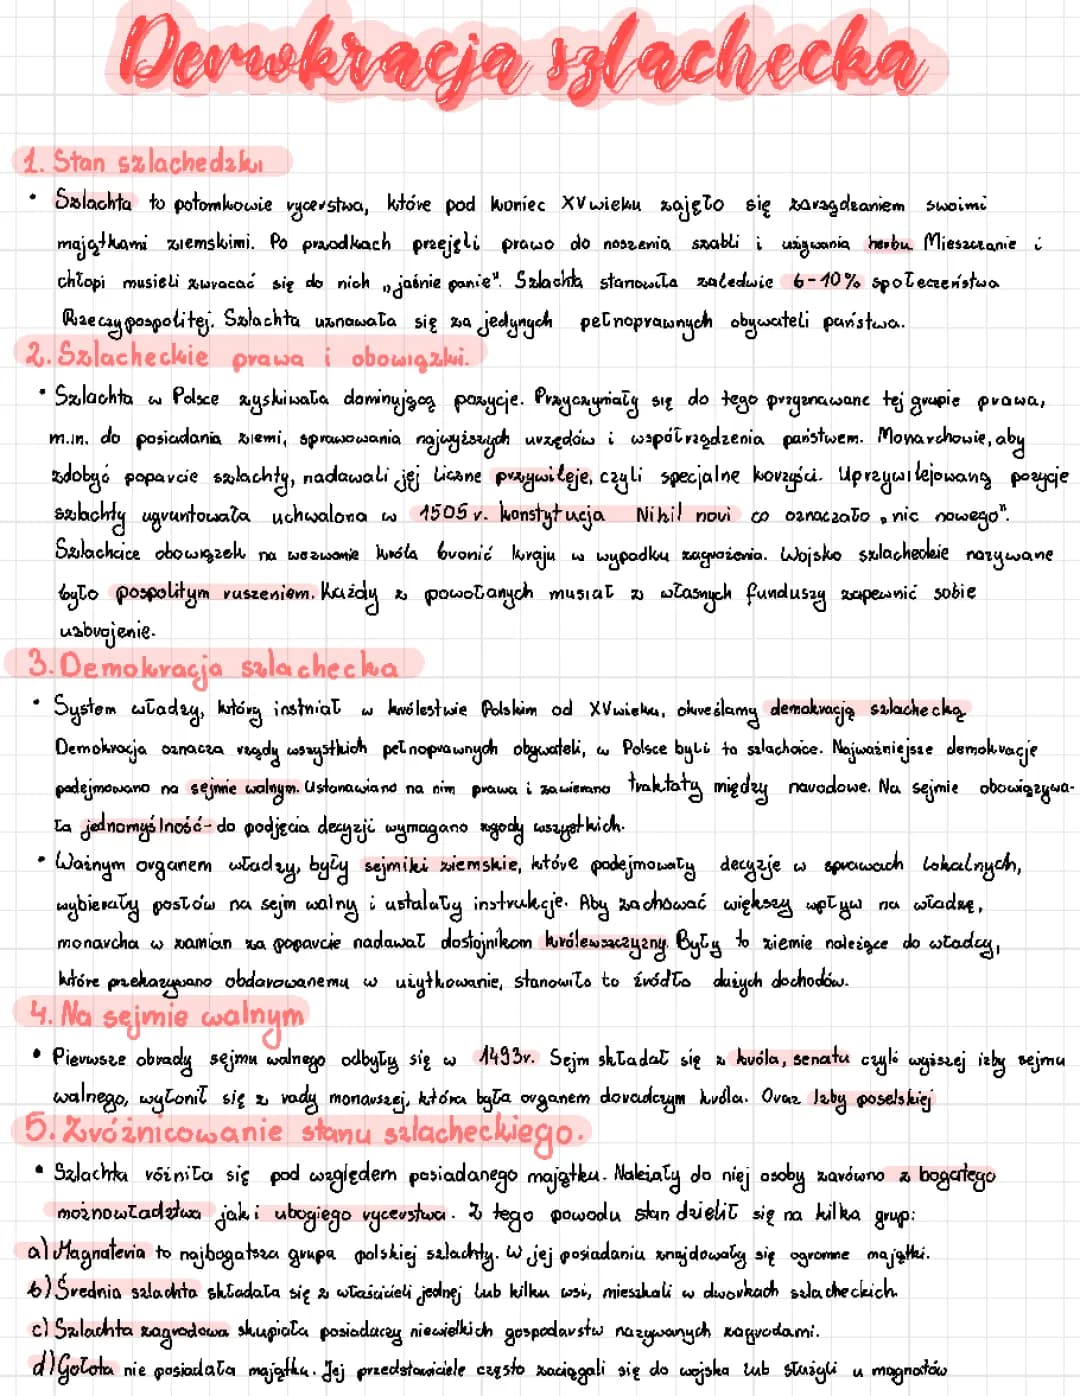 Demokracja szlachecka
1. Stan szlachedzki
• Szlachta to potomkowie rycerstwa, które pod koniec XV wieku zajęło się zarządzaniem swoimi
majątkami ziemskimi. Po przodkach przejęli prawo do noszenia szabli i używania herbu Mieszczanie i
chłopi musieli zwracać się do nich „jaśnie panie". Szlachta stanowiła zaledwie 6-10% społeczeństwa
Rzeczypospolitej. Szlachta uznawała się za jedynych pełnoprawnych obywateli państwa.
2. Szlacheckie prawa i obowiązki.
• Szlachta w Polsce zyskiwała dominującą pozycje. Przyczyniały się do tego przyznawane tej grupie prawa,
m.in. do posiadania ziemi, sprawowania najwyższych urzędów i współrządzenia państwem. Monarchowie, aby
zdobyć poparcie szlachty, nadawali jej liczne przywileje, czyli specjalne korzyści. Uprzywilejowaną pozycje
szlachty ugruntowała uchwalona w 1505 r. konstytucja Nihil novi co oznaczało „nic nowego".
Szlachcice obowiązek na wezwanie króla bronić kraju w wypadku zagrożenia. Wojsko szlacheckie nazywane
było pospolitym ruszeniem. Każdy z powołanych musiał z własnych funduszy zapewnić sobie
uzbrojenie.
3. Demokracja szlachecka
• System władzy, który instniał w królestwie Polskim od XV wieku, określamy demokracją szlachecką
Demokracja oznacza rządy wszystkich pełnoprawnych obywateli, w Polsce byli to szlachcice. Najważniejsze demokracje
podejmowano na sejmie walnym. Ustanawiano na nim prawa i zawierano traktaty między narodowe. Na sejmie obowiązywa-
ła jednomyślność- do podjęcia decyzji wymagano zgody wszystkich.
• Ważnym organem władzy, były sejmiki ziemskie, które podejmowały decyzje w sprawach lokalnych,
wybierały posłów na sejm walny i ustalały instrukcje. Aby zachować większy wpływ na władzę,
monarcha w zamian za poparcie nadawał dostojnikom królewszczyzny. Były to ziemie należące do władcy,
które przekazywano obdarowanemu w użytkowanie, stanowiło to źródło dużych dochodów.
4. Na sejmie walnym
• Pierwsze obrady sejmu walnego odbyły się w 1493r. Sejm składał się z króla, senatu czyli wyższej izby sejmu
walnego, wyłonił się z rady monarszej, która była organem doradczym króla. Oraz Izby poselskiej
5. Zróżnicowanie stanu szlacheckiego.
• Szlachta różniła się pod względem posiadanego majątku. Należały do niej osoby zarówno z bogatego
możnowładztwa jak i ubogiego rycerstwa. Z tego powodu stan dzielił się na kilka grup:
a) Magnateria to najbogatsza grupa polskiej szlachty. W jej posiadaniu znajdowały się ogromne majątki.
b) Średnia szlachta składała się z właścicieli jednej lub kilku wsi, mieszkali w dworkach szlacheckich.
c) Szlachta zagrodowa skupiała posiadaczy niewielkich gospodarstw nazywanych zagrodami.
d) Gołota nie posiadała majątku. Jej przedstawiciele często zaciągali się do wojska lub służyli u magnatów